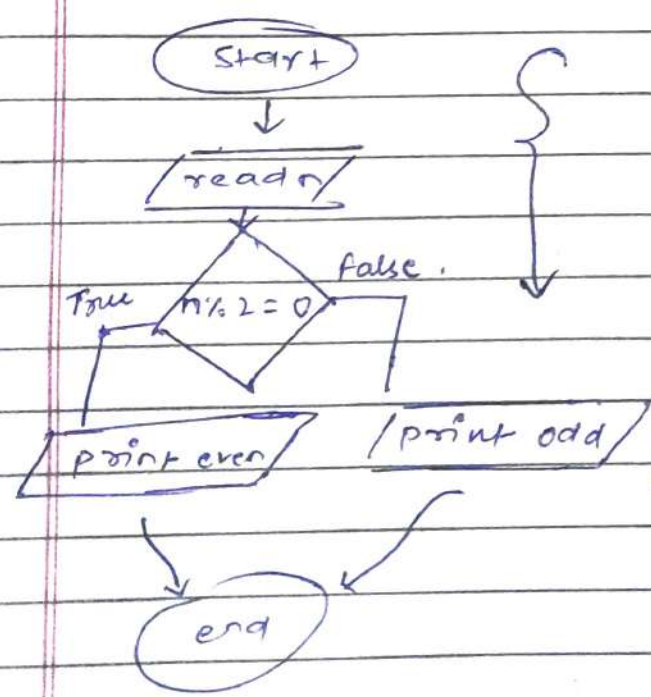 Start
read n
True
n% 2 = 0
false.
print even
print odd
end